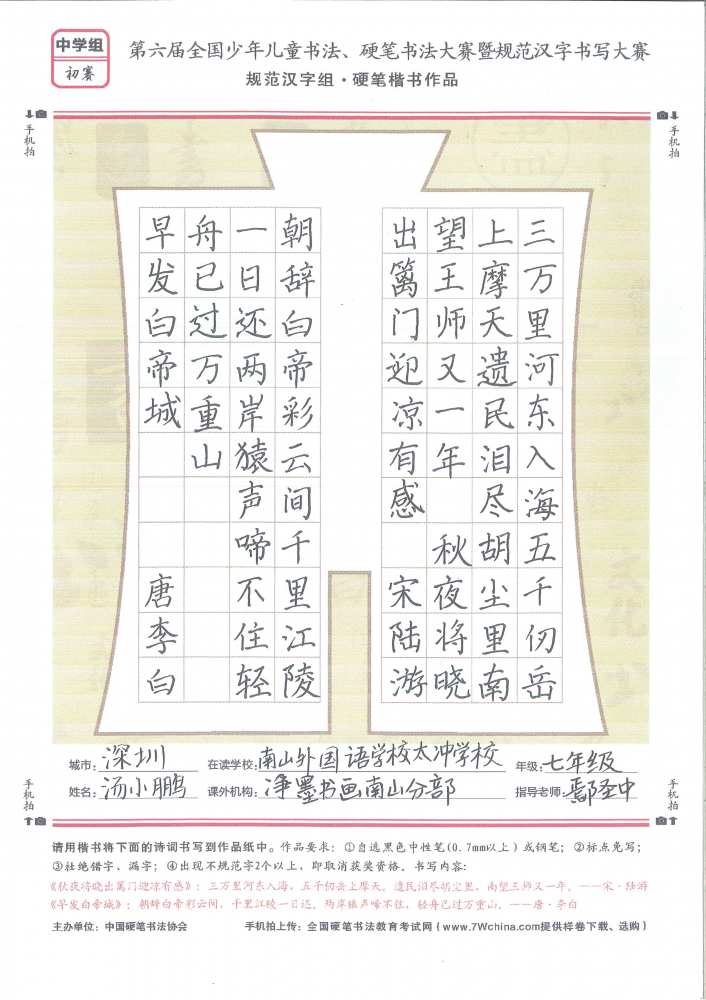 中学组
初赛
第六届全国少年儿童书法、硬笔书法大赛暨规范汉字书写大赛
规范汉字组·硬笔楷书作品
手机拍
手机拍
三万里河东入海五千仞岳
上摩天遗民泪尽胡尘里南
望王师又一年 秋夜将晓
出篱门迎凉有感 宋陆游
朝辞白帝彩云间千里江陵
一日还两岸猿声啼不住轻
舟已过万重山
早发白帝城 唐李白
城市：深圳 在读学校：南山外国语学校太冲学校 年级：七年级
姓名：汤小鹏 课外机构：净墨书画南山分部 指导老师：鄢圣中
手机拍
手机拍
请用楷书将下面的诗词书写到作品纸中。作品要求：①自选黑色中性笔(0.7mm以上)或钢笔；②标点免写；
③杜绝错字、漏字；④出现不规范字2个以上，即取消获奖资格。书写内容：
《秋夜将晓出篱门迎凉有感》：三万里河东入海，五千仞岳上摩天。遗民泪尽胡尘里，南望王师又一年。——宋·陆游
《早发白帝城》：朝辞白帝彩云间，千里江陵一日还。两岸猿声啼不住，轻舟已过万重山。——唐·李白
主办单位：中国硬笔书法协会 手机拍上传：全国硬笔书法教育考试网（www.7Wchina.com提供样卷下载、选购）